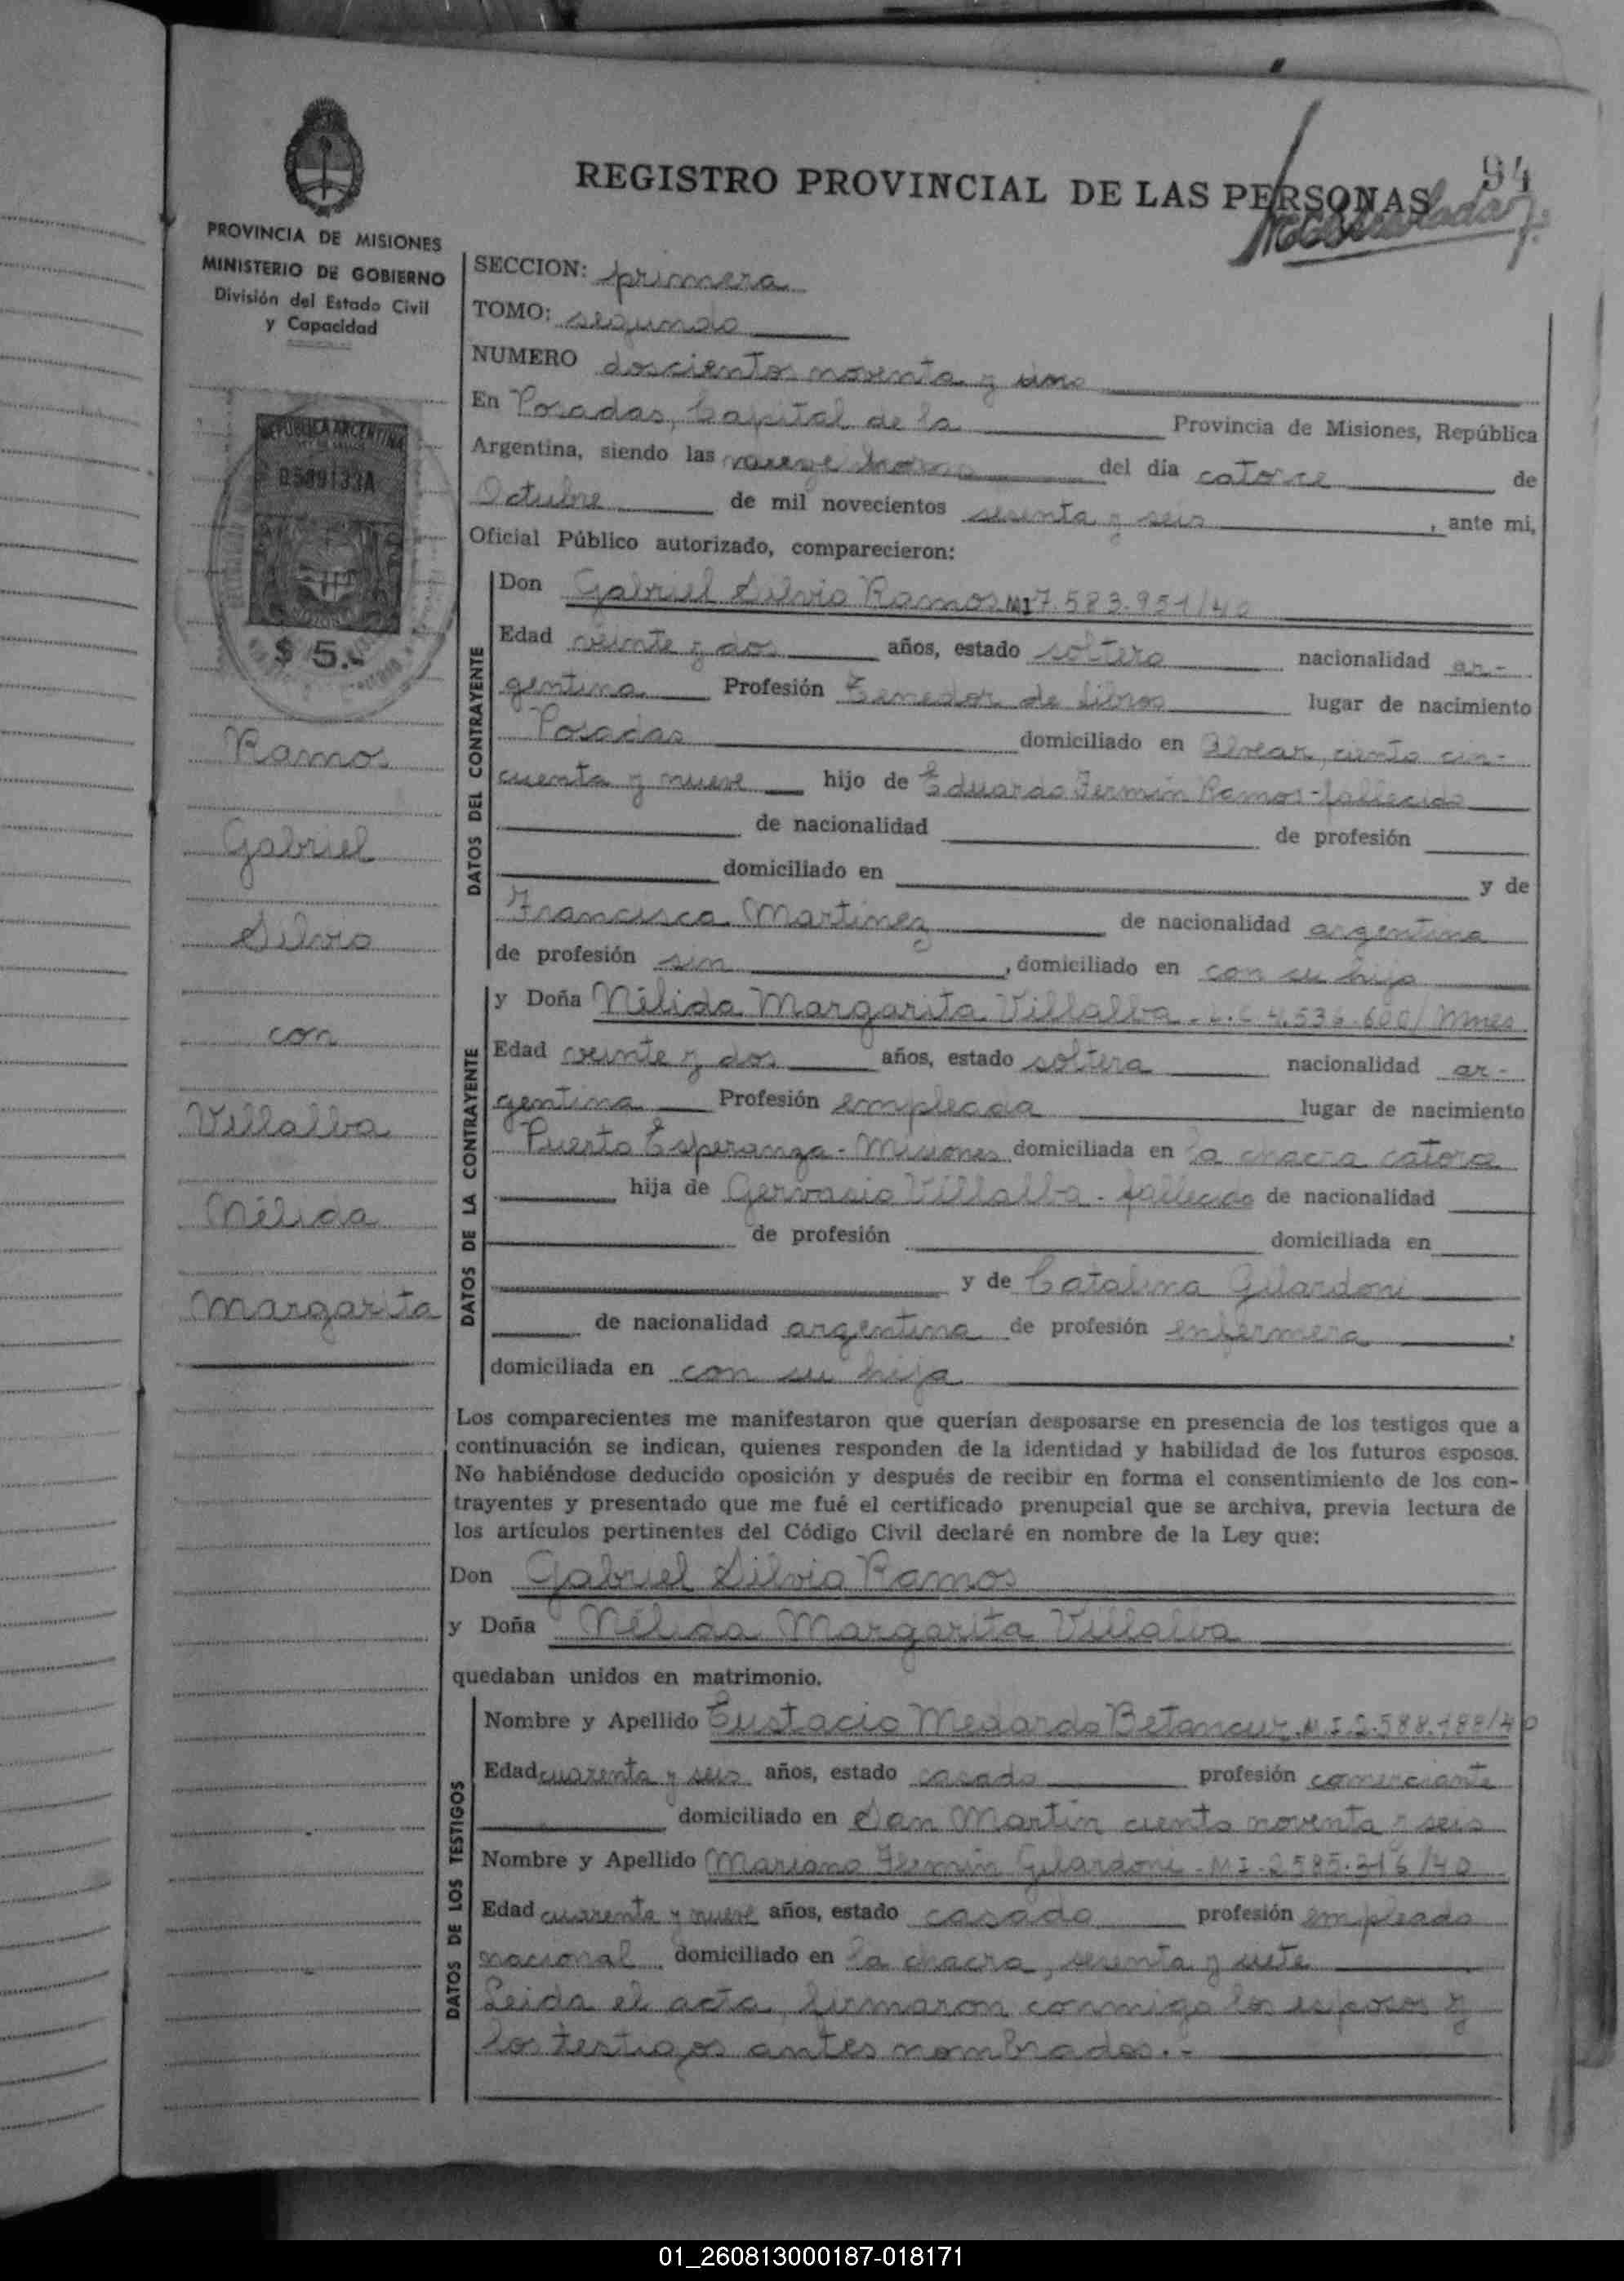 94
REGISTRO PROVINCIAL DE LAS PERSONAS
PROVINCIA DE MISIONES
MINISTERIO DE GOBIERNO
División del Estado Civil
y Capacidad
REPUBLICA ARGENTINA
$ 5.-
Ramos
Gabriel
Silvio
con
Villalba
Nélida
Margarita
SECCION: primera
TOMO: segundo
NUMERO doscientos noventa y uno
En Posadas, Capital de la Provincia de Misiones, República
Argentina, siendo las nueve horas del día catorce de
Octubre de mil novecientos sesenta y seis, ante mi,
Oficial Público autorizado, comparecieron:
DATOS DEL CONTRAYENTE
Don Gabriel Silvio Ramos MI 7.583.951/40
Edad veinte y dos años, estado soltero nacionalidad ar-
gentina Profesión Tenedor de libros lugar de nacimiento
Posadas domiciliado en Alvear, ciento cin-
cuenta y nueve hijo de Eduardo Fermín Ramos - fallecido
de nacionalidad de profesión
domiciliado en y de
Francisca Martinez de nacionalidad argentina
de profesión sin, domiciliado en con su hijo
DATOS DE LA CONTRAYENTE
y Doña Nélida Margarita Villalba - L.C 4.536.600/Mnes
Edad veinte y dos años, estado soltera nacionalidad ar-
gentina Profesión empleada lugar de nacimiento
Puerto Esperanza - Misiones domiciliada en la chacra catorce
hija de Gervasio Villalba - fallecido de nacionalidad
de profesión domiciliada en
y de Catalina Gilardoni
de nacionalidad argentina de profesión enfermera,
domiciliada en con su hija
Los comparecientes me manifestaron que querían desposarse en presencia de los testigos que a
continuación se indican, quienes responden de la identidad y habilidad de los futuros esposos.
No habiéndose deducido oposición y después de recibir en forma el consentimiento de los con-
trayentes y presentado que me fué el certificado prenupcial que se archiva, previa lectura de
los artículos pertinentes del Código Civil declaré en nombre de la Ley que:
Don Gabriel Silvio Ramos
y Doña Nélida Margarita Villalba
quedaban unidos en matrimonio.
DATOS DE LOS TESTIGOS
Nombre y Apellido Eustacio Medardo Betancur. M.I.2.588.188/40
Edad cuarenta y seis años, estado casado profesión comerciante
domiciliado en San Martín ciento noventa y seis
Nombre y Apellido Mariano Fermín Gilardoni - M.I. 2585.316/40
Edad cuarenta y nueve años, estado casado profesión empleado
nacional domiciliado en la chacra, sesenta y siete
Leida el acta, firmaron conmigo los esposos y
los testigos antes nombrados.-
01_260813000187-018171